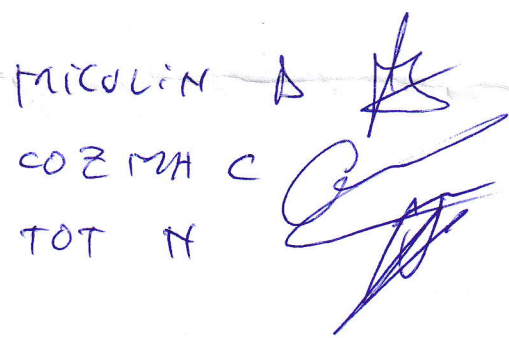 MICULIN A
COZMA C
TOT N